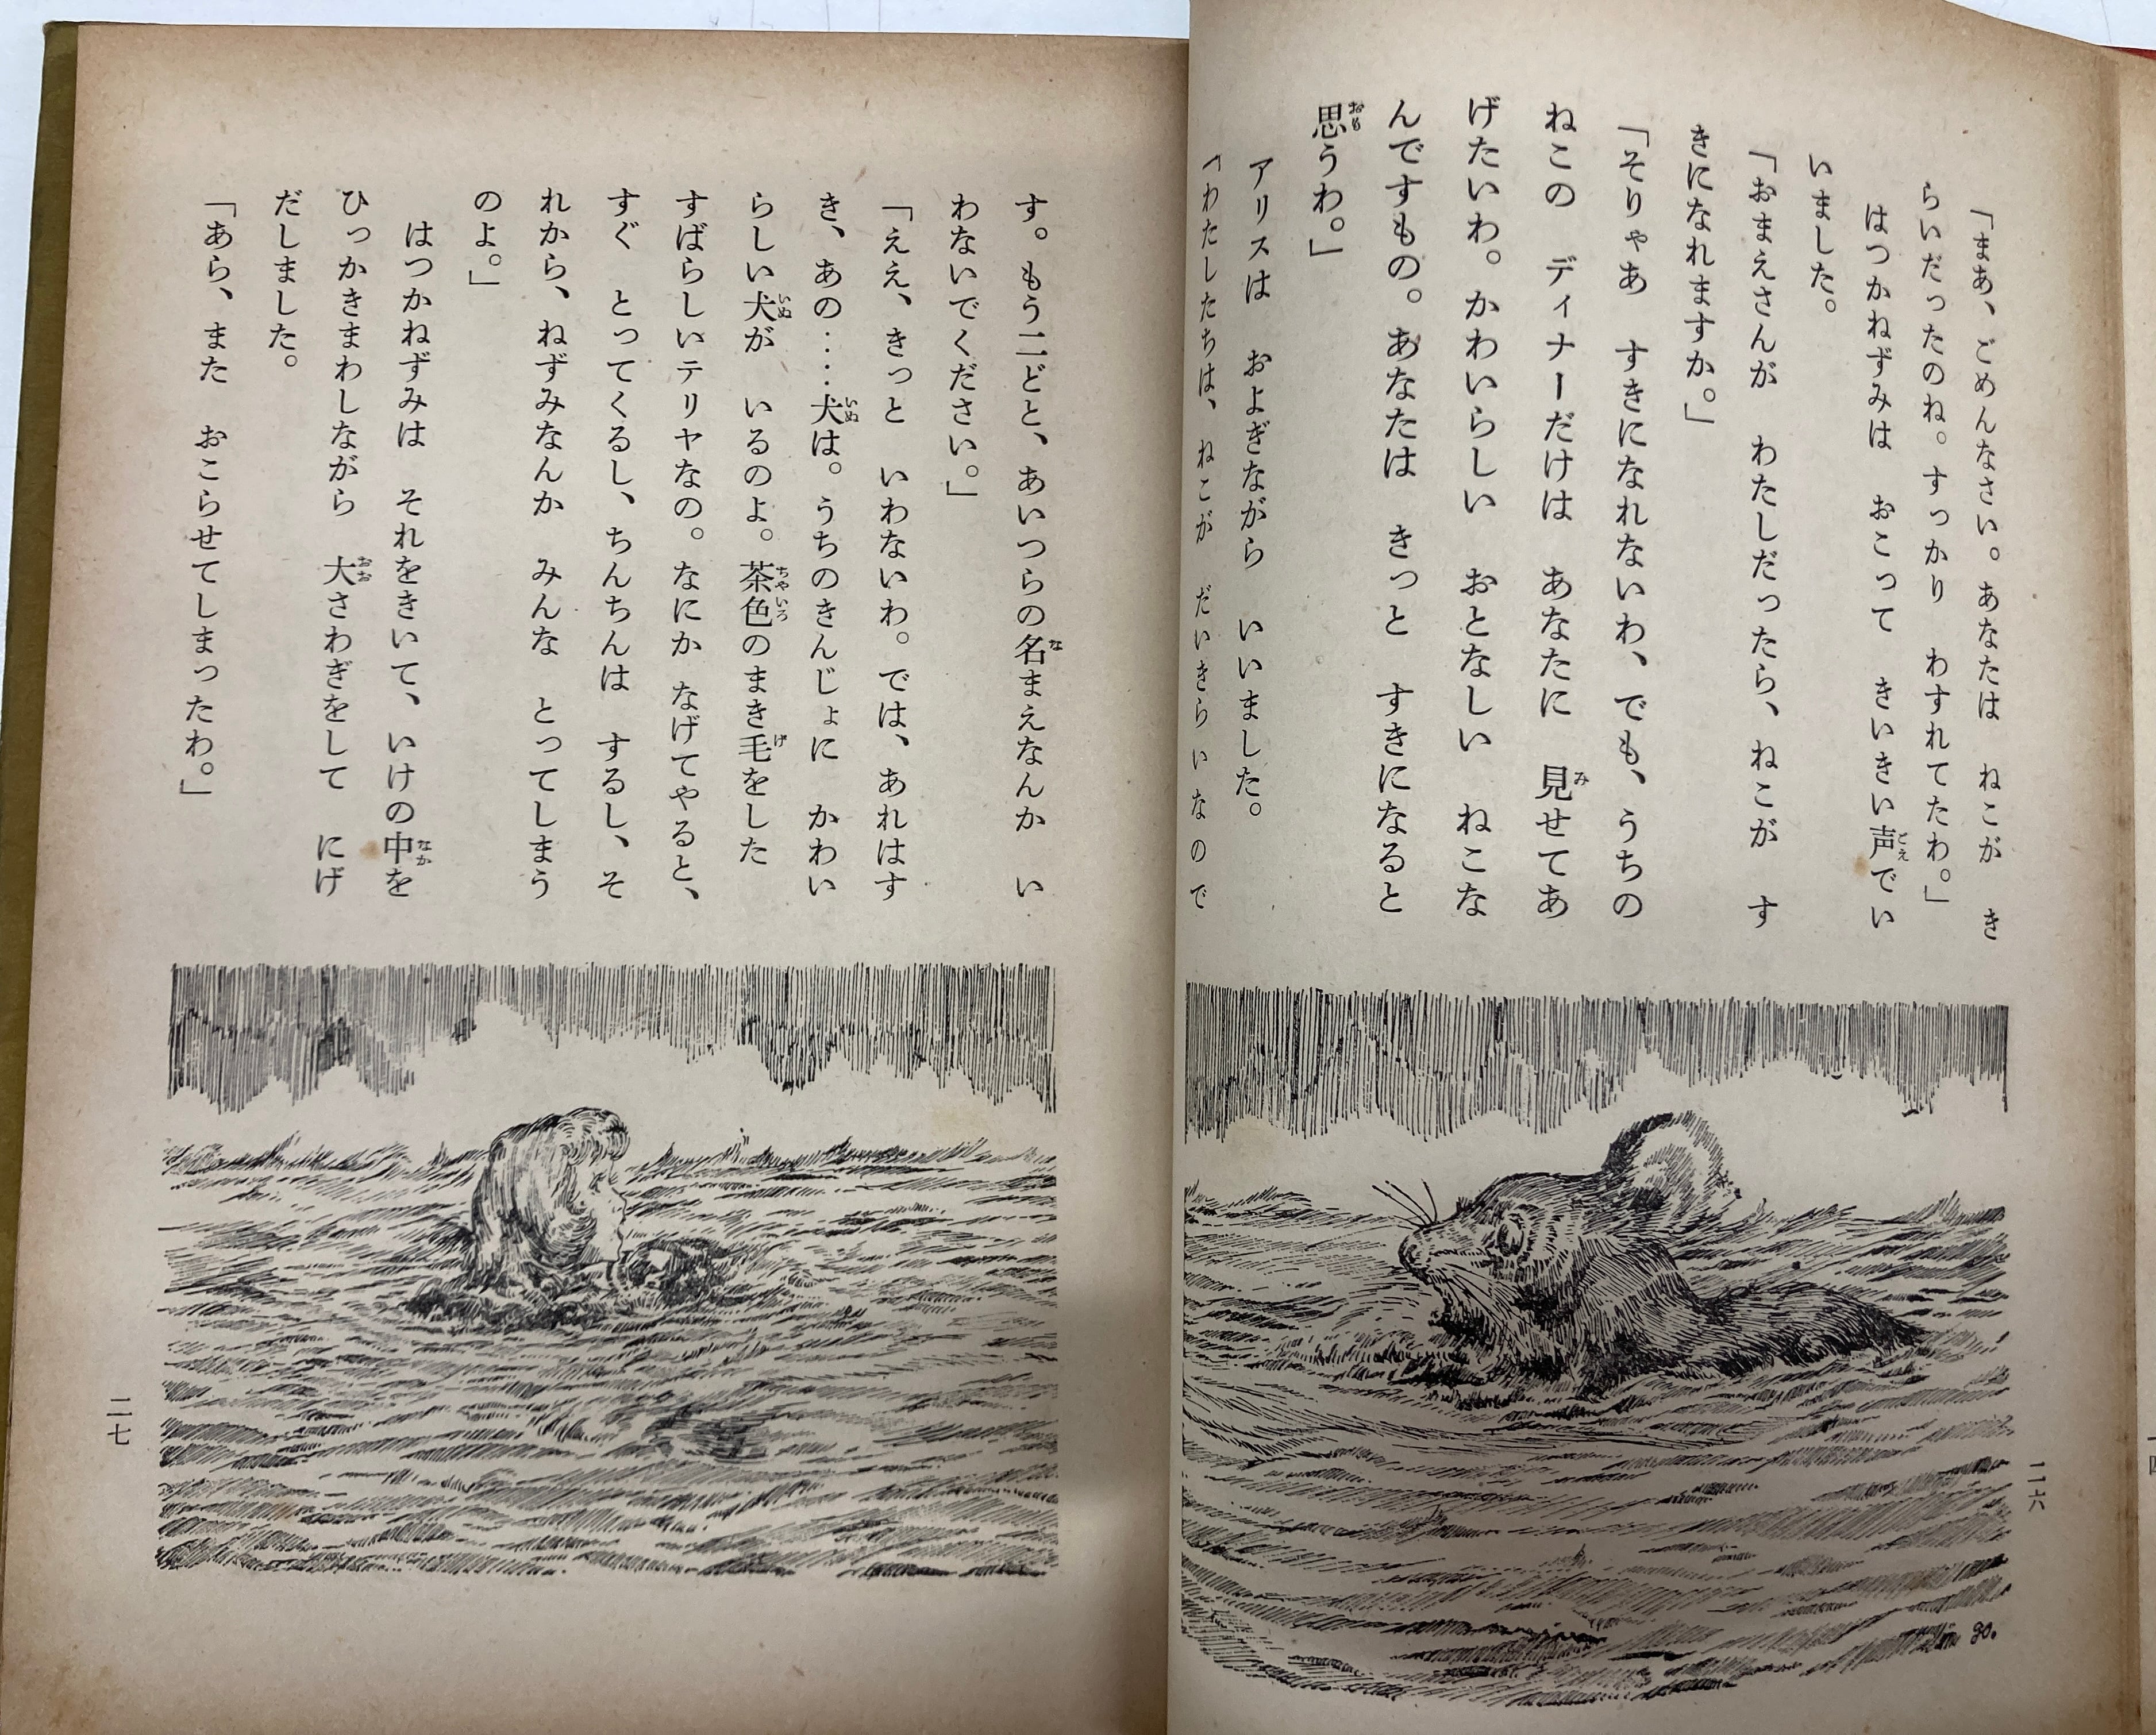 「まあ、ごめんなさい。あなたは　ねこが　き
らいだったのね。すっかり　わすれてたわ。」
はつかねずみは　おこって　きいきい声でい
いました。
「おまえさんが　わたしだったら、ねこが　す
きになれますか。」
「そりゃあ　すきになれないわ、でも、うちの
ねこの　ディナーだけは　あなたに　見せてあ
げたいわ。かわいらしい　おとなしい　ねこな
んですもの。あなたは　きっと　すきになると
思うわ。」
アリスは　およぎながら　いいました。
「わたしたちは、ねこが　だいきらいなので
二六
す。もう二どと、あいつらの名まえなんか　い
わないでください。」
「ええ、きっと　いわないわ。では、あれはす
き、あの……犬は。うちのきんじょに　かわい
らしい犬が　いるのよ。茶色のまき毛をした
すばらしいテリヤなの。なにか　なげてやると、
すぐ　とってくるし、ちんちんは　するし、そ
れから、ねずみなんか　みんな　とってしまう
のよ。」
はつかねずみは　それをきいて、いけの中を
ひっかきまわしながら　大さわぎをして　にげ
だしました。
「あら、また　おこらせてしまったわ。」
二七